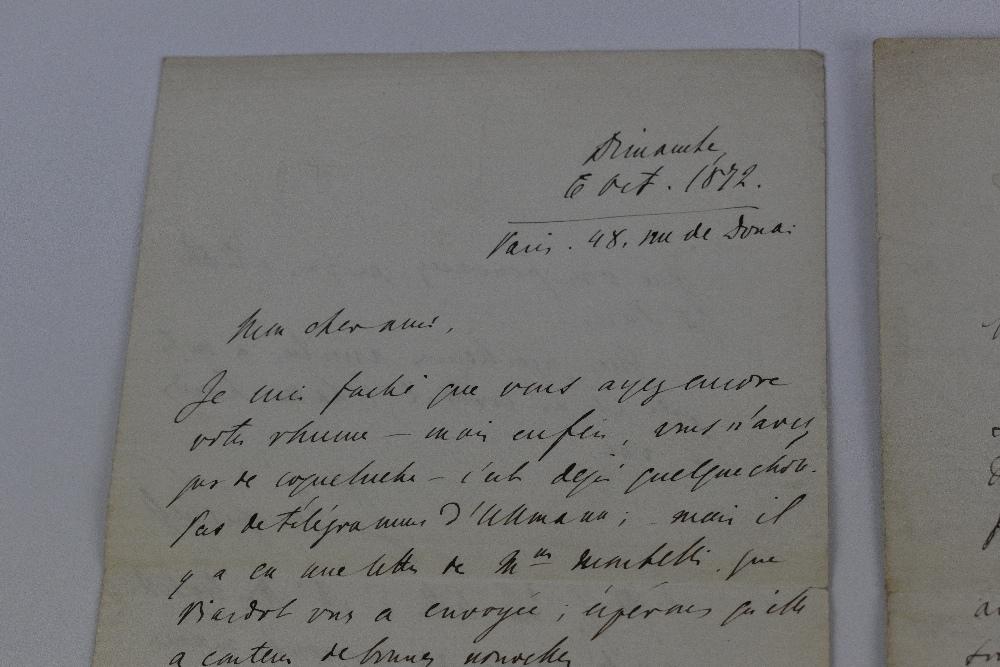 Dimanche
6 Oct. 1872.
Paris. 48, rue de Douai
Mon cher ami,
Je suis faché que vous ayez encore
votre rhume – mais enfin, vous n'avez
pas de coqueluche – c'est déjà quelque chose.
Pas de télégramme d'Ullmann; – mais il
y a eu une lettre de Mme Monbelli que
Viardot vous a envoyée; espérons qu'elle
a contenu de bonnes nouvelles